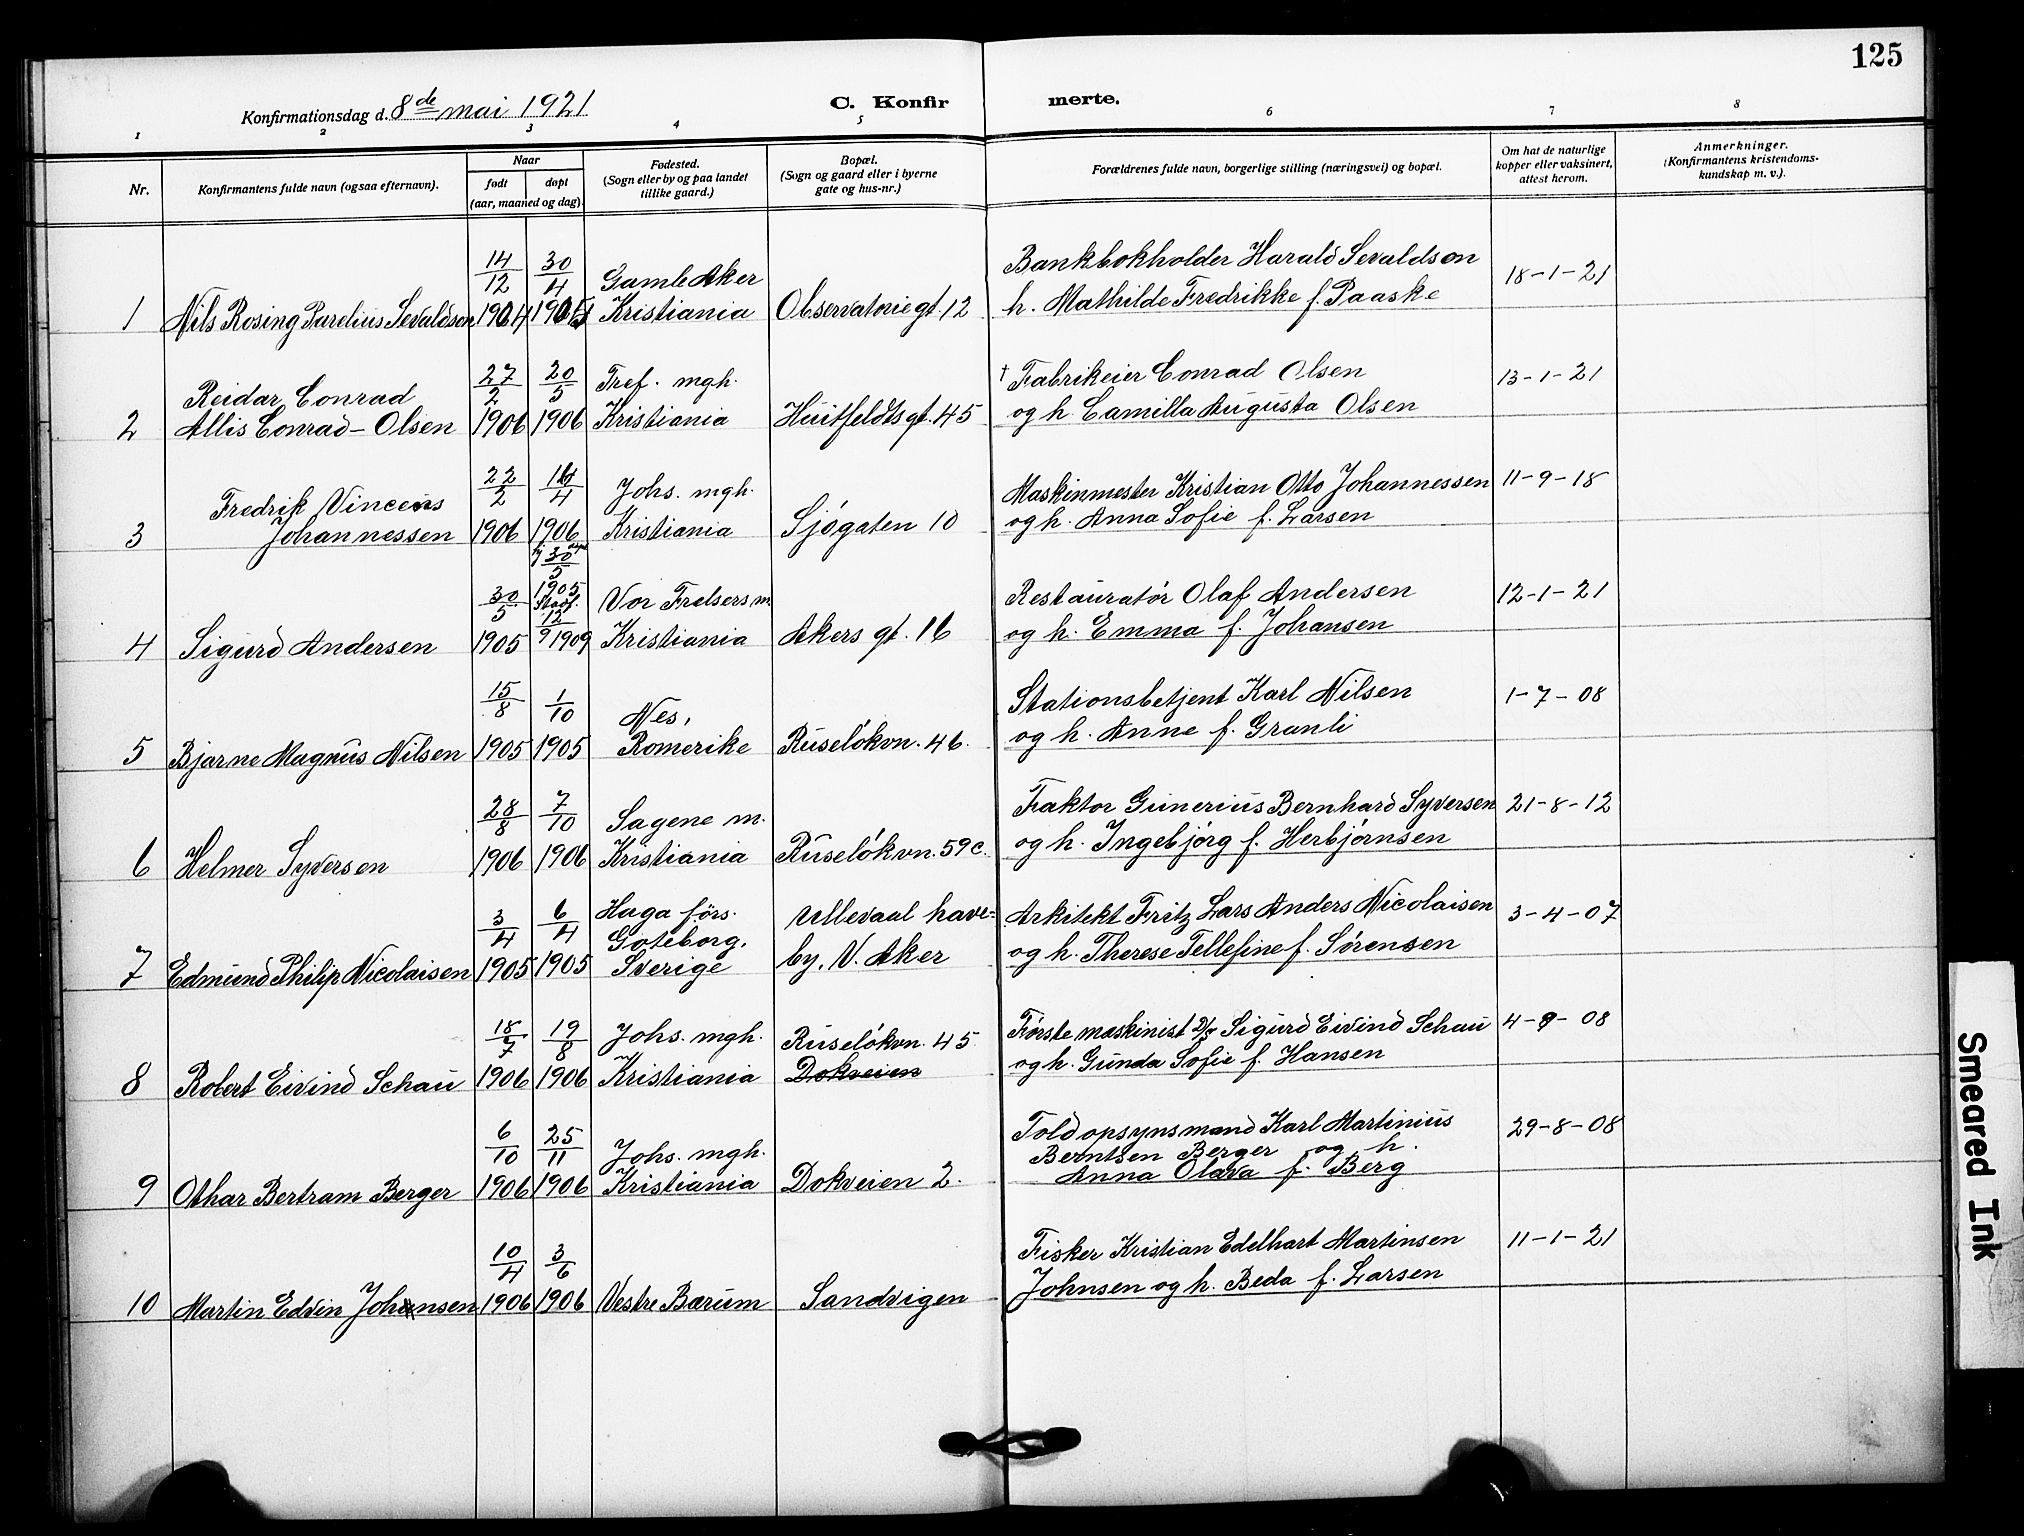 125
Konfirmationsdag d. 8de mai 1921
C. Konfir
merte.
1 2 3 4 5 6 7 8
Nr.
Konfirmantens fulde navn (ogsaa efternavn).
Naar
født døpt
(aar, maaned og dag).
Fødested.
(Sogn eller by og paa landet
tillike gaard.)
Bopæl.
(Sogn og gaard eller i byerne
gate og hus-nr.)
Forældrenes fulde navn, borgerlige stilling (næringsvei) og bopæl.
Om hat de naturlige
kopper eller vaksinert,
attest herom.
Anmerkninger.
(Konfirmantens kristendoms-
kundskap m. v.).
14/12 30/4 Gamle Aker Bankbokholder Harald Sevaldson 18-1-21
1 Nils Rosing Parelius Sevaldson 1904 1905 Kristiania Observatoriegt. 12 h. Mathilde Fredrikke f. Paaske
Reidar Conrad 27/2 20/5 Tref. mgh. † Fabrikeier Conrad Olsen 13-1-21
2 Allis Conrad-Olsen 1906 1906 Kristiania Huitfeldtsgt. 45 og h. Camilla Augusta Olsen
Fredrik Vincens 22/2 14/4 Johs. mgh. Maskinmester Kristian Otto Johannessen 11-9-18
3 Johannessen 1906 1906 Kristiania Sjøgaten 10 og h. Anna Sofie f. Larsen
30/5
30/5 1905 Stadf. Vor Frelsers m. Restauratør Olaf Andersen 12-1-21
4 Sigurd Andersen 1905 12/9 1909 Kristiania Akers gt. 16 og h. Emma f. Johansen
15/8 1/10 Nes, Stationsbetjent Karl Nilsen 1-7-08
5 Bjarne Magnus Nilsen 1905 1905 Romerike Ruseløkvn. 46. og h. Anne f. Granli
28/8 7/10 Sagene m. Faktor Gunerius Bernhard Syversen 21-8-12
6 Helmer Syversen 1906 1906 Kristiania Ruseløkvn. 59c. og h. Ingebjørg f. Herbjørnsen
3/4 6/4 Haga förs. Göteborg, Ullevaal have- Arkitekt Fritz Lars Anders Nicolaisen 3-4-07
7 Edmund Philip Nicolaisen 1905 1905 Sverige by, V. Aker og h. Therese Tellefine f. Sørensen
18/7 19/8 Johs. mgh. Ruseløkvn. 45 Første maskinist D/S Sigurd Eivind Schau 4-9-08
8 Robert Eivind Schau 1906 1906 Kristiania Dokveien og h. Gunda Sofie f. Hansen
6/10 25/11 Johs. mgh. Toldopsynsmand Karl Martinius 29-8-08
Berntsen Berger og h.
9 Othar Bertram Berger 1906 1906 Kristiania Dokveien 2. Anna Olava f. Berg
10/4 3/6 Fisker Kristian Edelhart Martinsen 11-1-21
10 Martin Edvin Johnsen 1906 1906 Vestre Bærum Sandvigen Johnsen og h. Beda f. Larsen
Smeared Ink